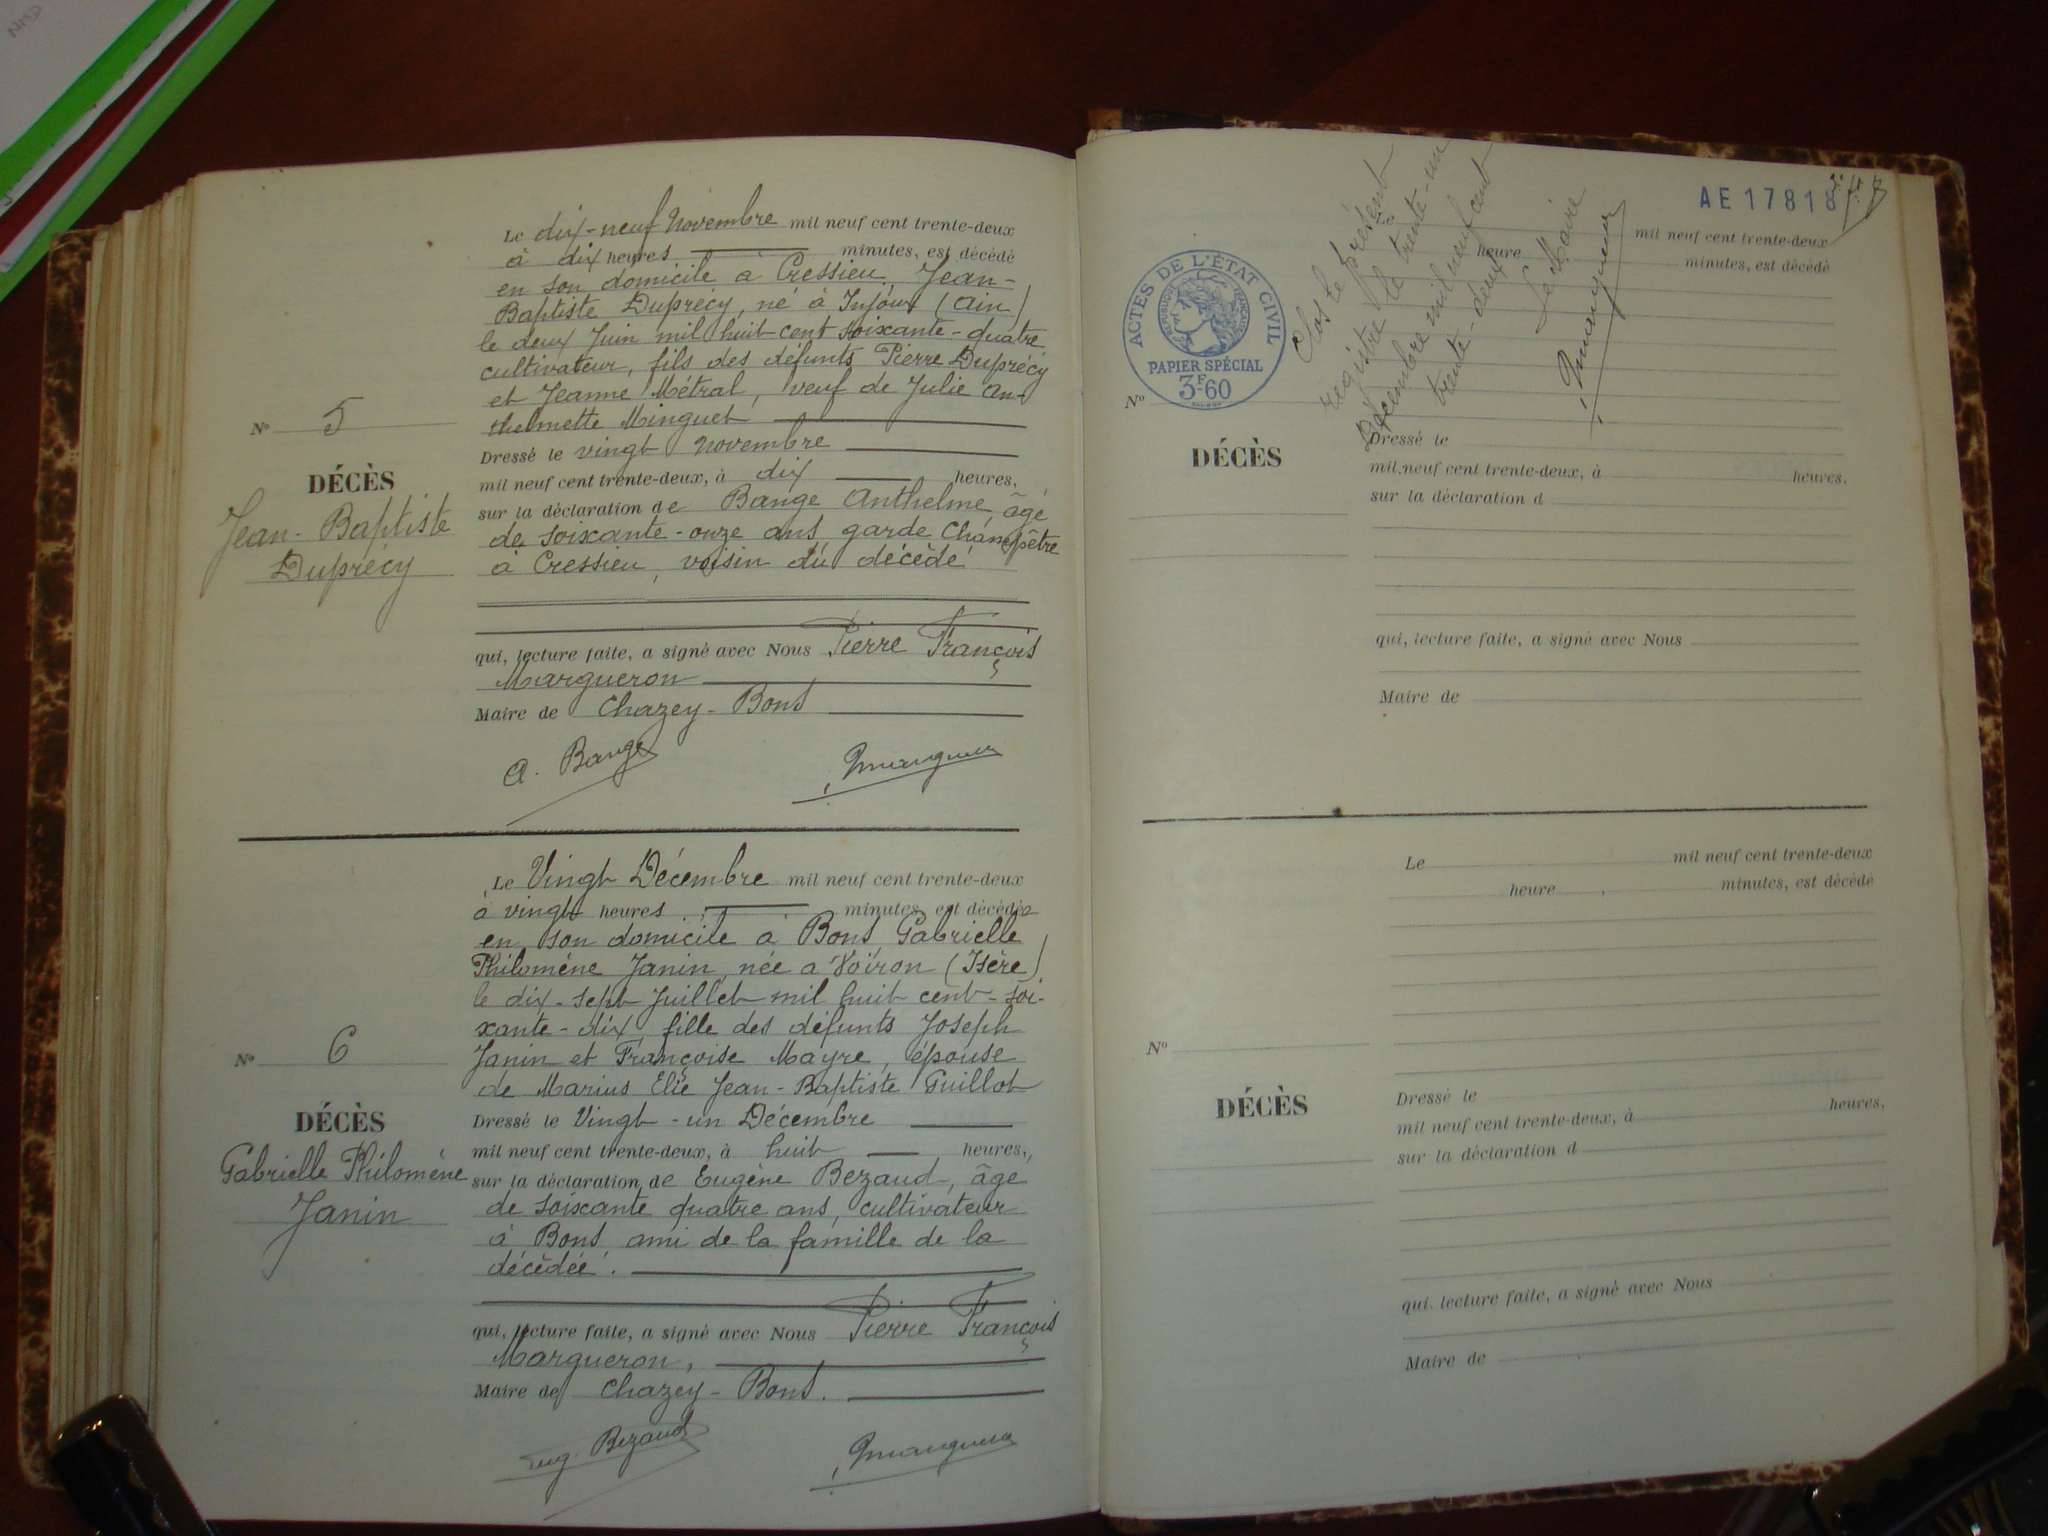 Le dix-neuf Novembre mil neuf cent trente-deux
à dix heures minutes, est décédé
en son domicile à Cressieu, Jean-
Baptiste Duprécy, né à Injoux (Ain)
le deux Juin mil huit cent soixante-quatre
cultivateur, fils des défunts Pierre Duprécy
et Jeanne Métral, veuf de Julie An-
thelmette Minguet
Nº 5
DÉCÈS
Jean-Baptiste
Duprécy
Dressé le vingt novembre
mil neuf cent trente-deux, à dix heures,
sur la déclaration de Bange Anthelme, âgé
de soixante-onze ans, garde Champêtre
à Cressieu, voisin du décédé
qui, lecture faite, a signé avec Nous Pierre François
Margueron
Maire de Chazey-Bons
A. Bange
Pmargueron
Le Vingt Décembre mil neuf cent trente-deux
à vingt heures minutes, est décédée
en son domicile à Bons Gabrielle
Philomène Janin, née a Voiron (Isère)
le dix-sept Juillet mil huit cent-soi-
xante-dix, fille des défunts Joseph
Janin et Françoise Mayre, épouse
de Marius Elie Jean-Baptiste Guillot
Nº 6
DÉCÈS
Gabrielle Philomène
Janin
Dressé le Vingt-un Décembre
mil neuf cent trente-deux, à huit heures,
sur la déclaration de Eugène Bezaud, âgé
de soixante quatre ans, cultivateur
à Bons ami de la famille de la
décédée.
qui, lecture faite, a signé avec Nous Pierre François
Margueron,
Maire de Chazey-Bons.
Eug. Bezaud
Pmargueron
AE 17818
Clos le présent
registre le trente-un
Décembre mil neuf cent
trente-deux
Le Maire
Pmargueron
ACTES DE L'ÉTAT CIVIL
RÉPUBLIQUE FRANÇAISE
PAPIER SPÉCIAL
3F-60
Le mil neuf cent trente-deux
heure minutes, est décédé
Nº
DÉCÈS
Dressé le
mil neuf cent trente-deux, à heures,
sur la déclaration d
qui, lecture faite, a signé avec Nous
Maire de
Le mil neuf cent trente-deux
heure minutes, est décédé
Nº
DÉCÈS
Dressé le
mil neuf cent trente-deux, à heures,
sur la déclaration d
qui, lecture faite, a signé avec Nous
Maire de